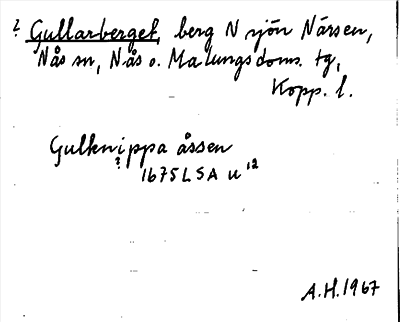 ? Gullarberget, berg N sjön Närsen,
Nås sn, Nås o. Malungs doms. tg,
Kopp. l.
Gulknippa åssen
?
1675 LSA u 12
A.H. 1967